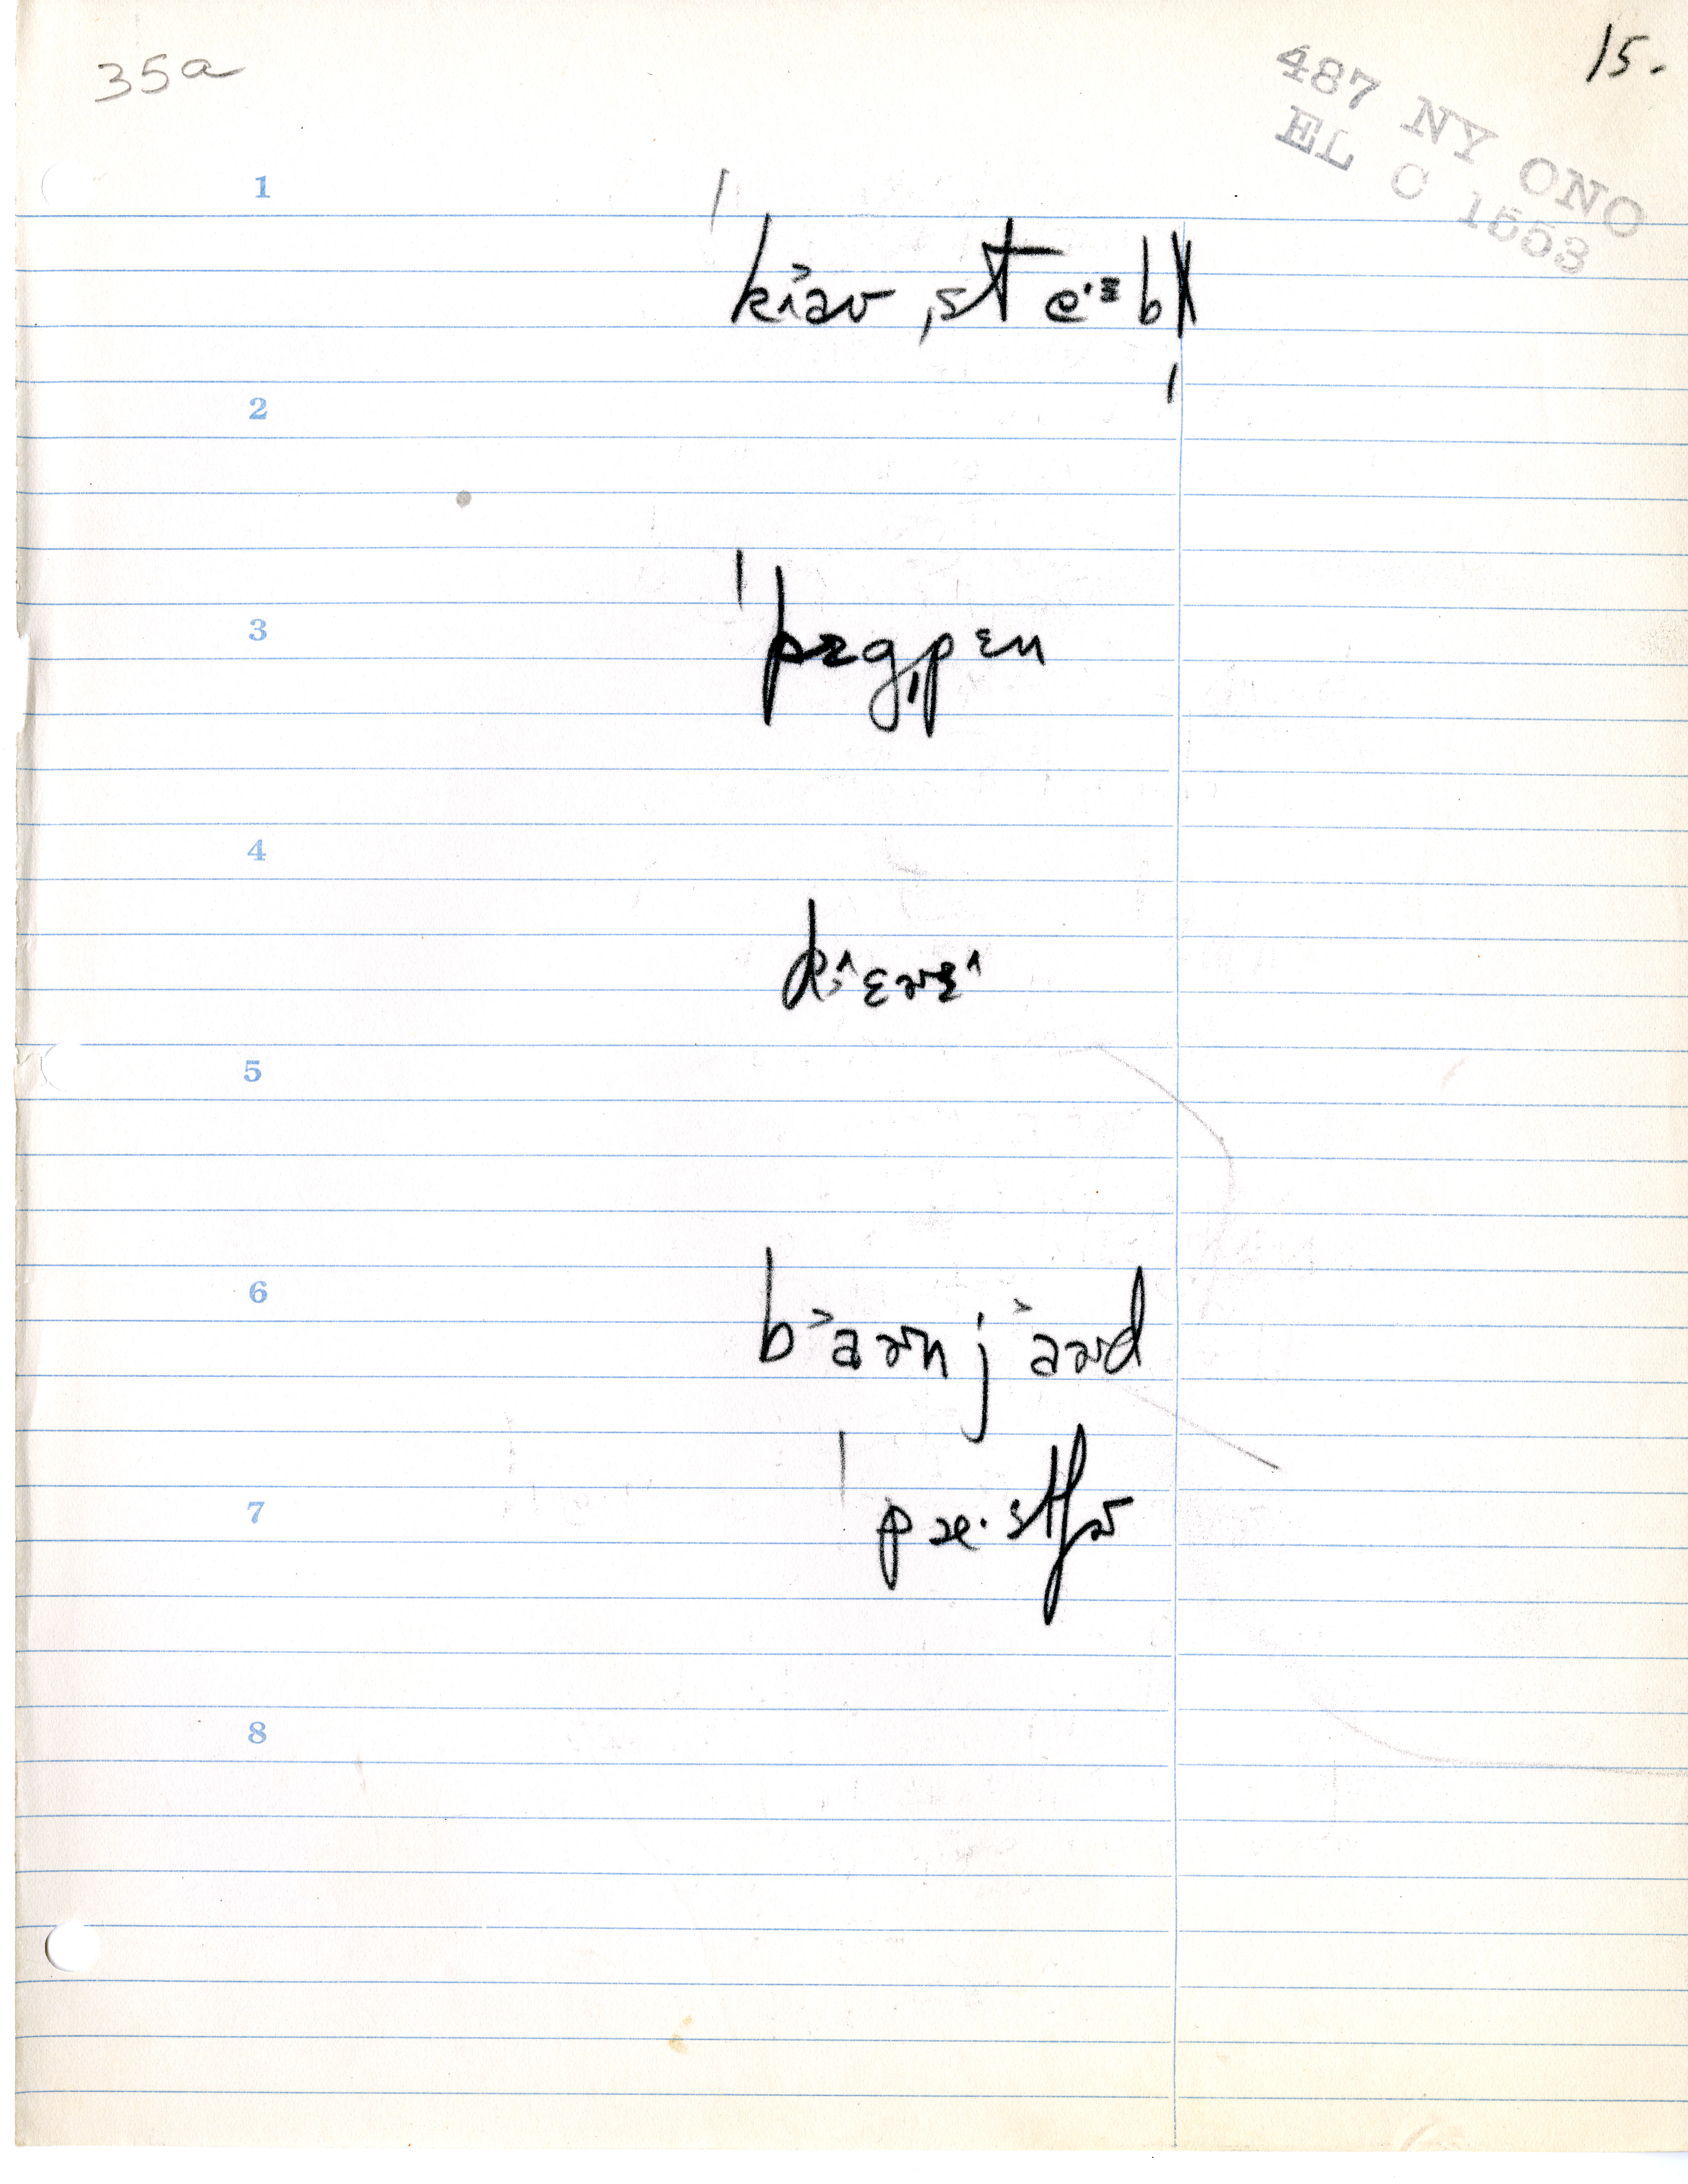 35a
15.
487 NY ONO
EL C 1553
1
ˈkɪ˃aʊ ˌst e·ᵻb
2
3
ˈpɪgˌpɛn
4
d ɛɚɪ
5
6
b˃aɚn j˃aɚd
7
ˈpæ·stʃɚ
8